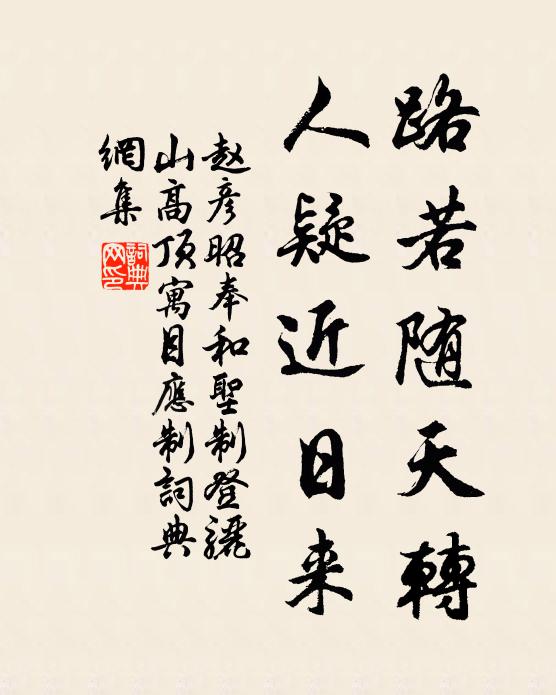 路若随天轉
人疑近日来
赵彦昭奉和聖制登驪
山高顶寓目應制詞典
網集
詞典網印